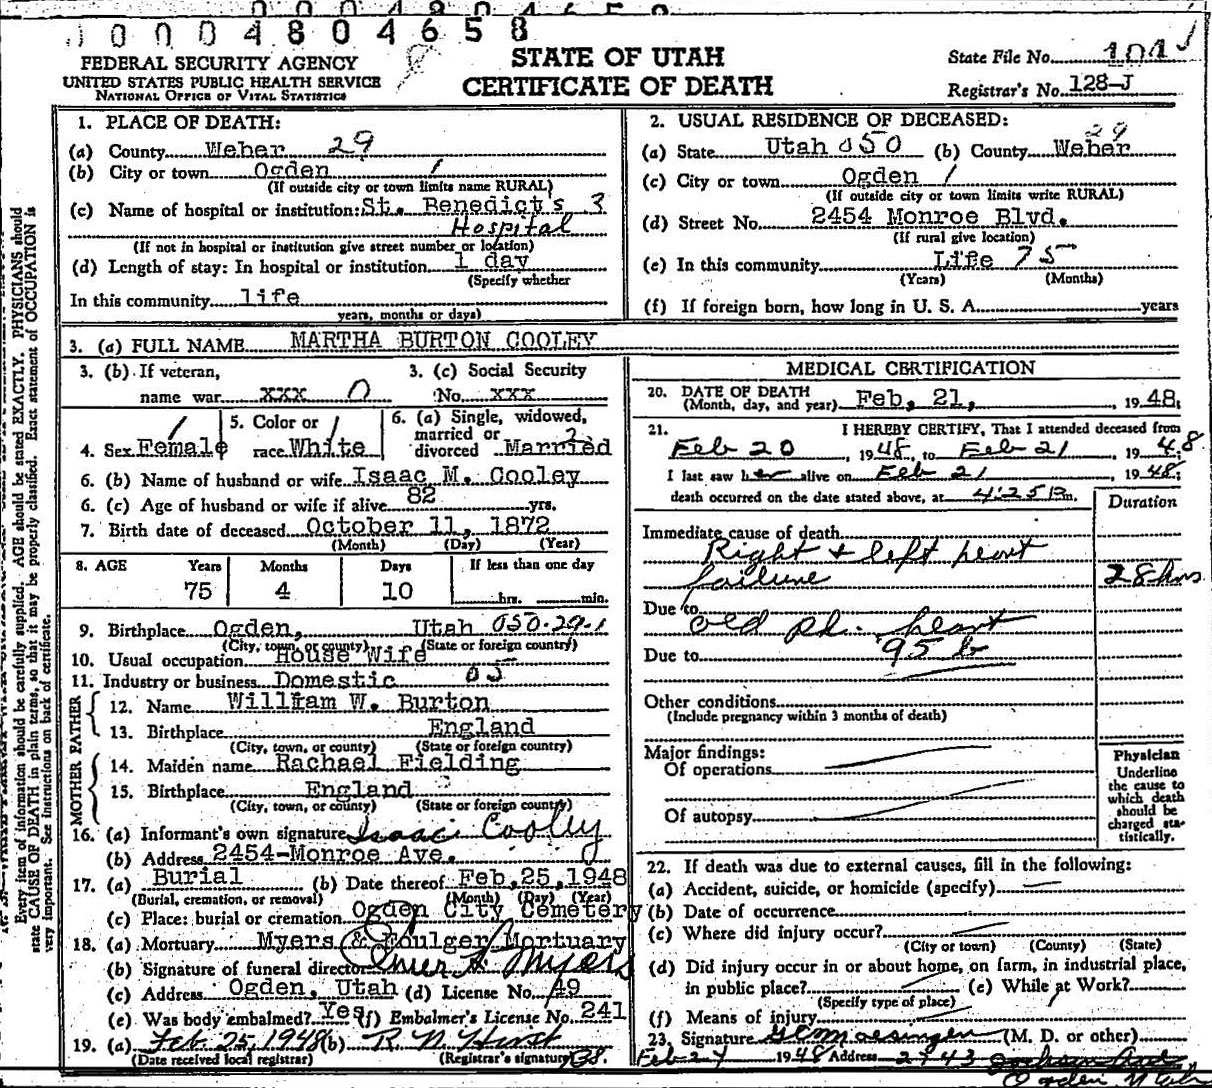 0 0 0 4 8 0 4 6 5 8
FEDERAL SECURITY AGENCY
UNITED STATES PUBLIC HEALTH SERVICE
NATIONAL OFFICE OF VITAL STATISTICS
STATE OF UTAH
CERTIFICATE OF DEATH
State File No. 101
Registrar's No. 128-J
Every item of information should be carefully supplied. AGE should be stated EXACTLY. PHYSICIANS should
state CAUSE OF DEATH in plain terms, so that it may be properly classified. Exact statement of OCCUPATION is
very important. See instructions on back of certificate.
1. PLACE OF DEATH:
(a) County Weber 29
(b) City or town Ogden 1
(If outside city or town limits name RURAL)
(c) Name of hospital or institution: St. Benedict's 3
Hospital
(If not in hospital or institution give street number or location)
(d) Length of stay: In hospital or institution 1 day
(Specify whether
In this community life
years, months or days)
2. USUAL RESIDENCE OF DECEASED:
29
(a) State Utah 050 (b) County Weber
(c) City or town Ogden 1
(If outside city or town limits write RURAL)
(d) Street No. 2454 Monroe Blvd.
(If rural give location)
(e) In this community Life 75
(Years) (Months)
(f) If foreign born, how long in U. S. A. years
3. (a) FULL NAME MARTHA BURTON COOLEY
3. (b) If veteran,
name war XXX 0
3. (c) Social Security
No. XXX
4. Sex Female 1
5. Color or 1
race White
6. (a) Single, widowed,
married or 2
divorced Married
6. (b) Name of husband or wife Isaac M. Cooley
6. (c) Age of husband or wife if alive 82 yrs.
7. Birth date of deceased October 11, 1872
(Month) (Day) (Year)
8. AGE Years Months Days If less than one day
75 4 10 hrs. min.
9. Birthplace Ogden, Utah 050-29-1
(City, town, or county) (State or foreign country)
10. Usual occupation House Wife
11. Industry or business Domestic 05
FATHER
12. Name William W. Burton
13. Birthplace England
(City, town, or county) (State or foreign country)
MOTHER
14. Maiden name Rachael Fielding
15. Birthplace England
(City, town, or county) (State or foreign country)
16. (a) Informant's own signature Isaac Cooley
(b) Address 2454-Monroe Ave.
17. (a) Burial (b) Date thereof Feb, 25, 1948
(Burial, cremation, or removal) (Month) (Day) (Year)
(c) Place: burial or cremation Ogden City Cemetery
18. (a) Mortuary Myers & Foulger Mortuary
(b) Signature of funeral director Myers
(c) Address Ogden, Utah (d) License No. 149
(e) Was body embalmed? Yes (f) Embalmer's License No. 241
19. (a) Feb. 25, 1948 (b) R N Hirst
(Date received local registrar) (Registrar's signature)
MEDICAL CERTIFICATION
20. DATE OF DEATH
(Month, day, and year) Feb, 21, , 1948;
21. I HEREBY CERTIFY, That I attended deceased from
Feb 20 , 1948, to Feb 21 , 1948
I last saw her alive on Feb 21 , 1948;
death occurred on the date stated above, at 4:25 m.
Duration
Immediate cause of death
Right + left heart
failure 28 hrs
Due to
old rh. heart
Due to 95 b
Other conditions
(Include pregnancy within 3 months of death)
Major findings:
Of operations
Of autopsy
Physician
Underline
the cause to
which death
should be
charged sta-
tistically.
22. If death was due to external causes, fill in the following:
(a) Accident, suicide, or homicide (specify)
(b) Date of occurrence
(c) Where did injury occur?
(City or town) (County) (State)
(d) Did injury occur in or about home, on farm, in industrial place,
in public place? (e) While at Work?
(Specify type of place)
(f) Means of injury
23. Signature (M. D. or other)
Feb 27 1948 Address 2743 Jackson Ave
Ogden, Utah